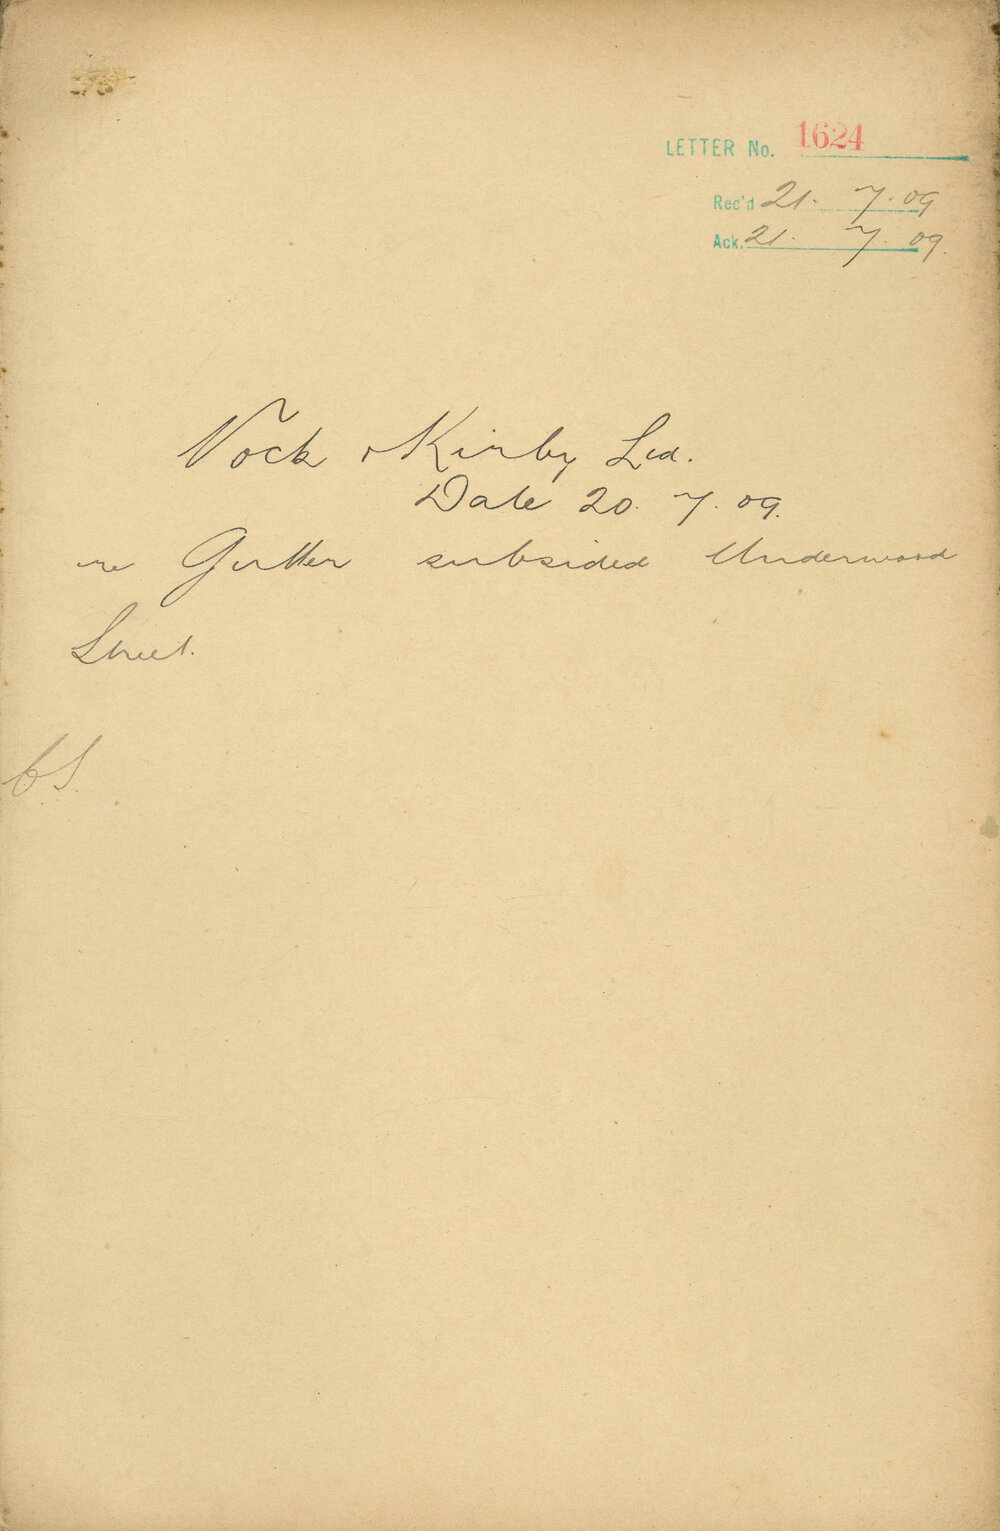 LETTER No. 1624
Rec'd 21. 7. 09
Ack. 21. 7. 09.
Nock & Kirby Ltd.
Date 20. 7. 09.
re Gutter subsided Underwood
Street.